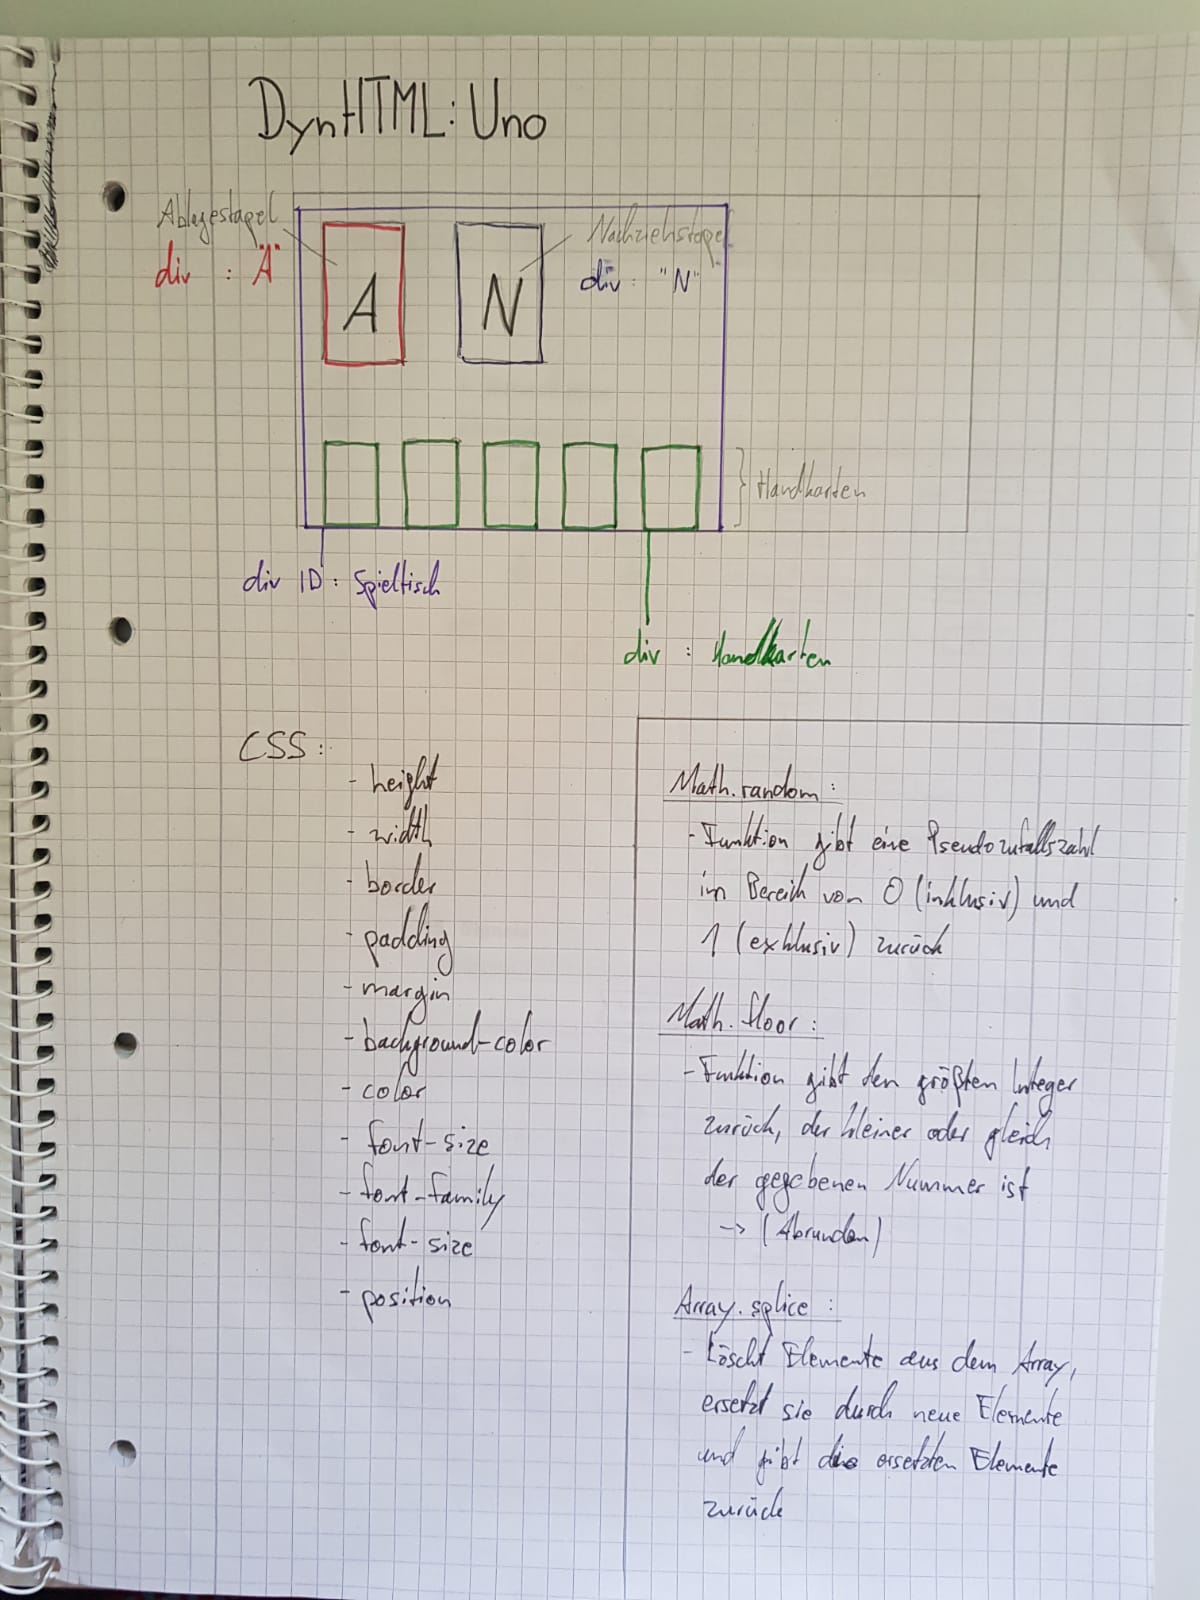 DynHTML: Uno
Ablegestapel
div : "A"
A
N
Nachziehstapel
div : "N"
Handkarten
div ID : Spieltisch
div : Handkarten
CSS :
- height
- width
- border
- padding
- margin
- background-color
- color
- font-size
- font-family
- font-size
- position
Math.random :
- Funktion gibt eine Pseudozufallszahl
im Bereich von 0 (inklusiv) und
1 (exklusiv) zurück
Math.floor :
- Funktion gibt den größten Integer
zurück, der kleiner oder gleich
der gegebenen Nummer ist
-> (Abrunden)
Array.splice :
- Löscht Elemente aus dem Array,
ersetzt sie durch neue Elemente
und gibt die ersetzten Elemente
zurück